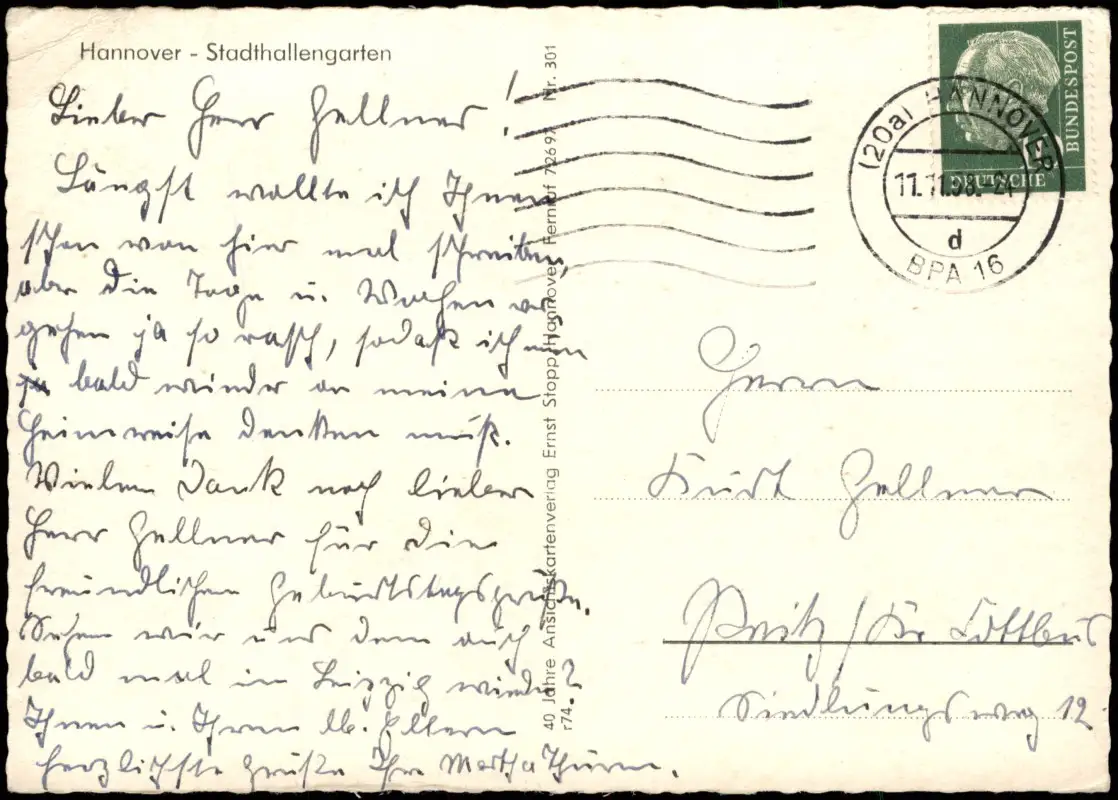 Hannover - Stadthallengarten
Lieber Herr Zellner!
Längst wollte ich Ihnen
schon von hier mal schreiben,
aber die Tage u. Wochen ver-
gehen ja so rasch, sodaß ich nun
bald wieder an meine
Heimreise denken muß.
Vielen Dank noch lieber
Herr Zellner für die
freundlichen Geburtstagsgrüße.
Sehen wir uns denn auch
bald mal in Leipzig wieder?
Ihnen u. Ihren lb. Eltern
herzlichste Grüße Ihre Martha Thürm.
40 Jahre Ansichtskartenverlag Ernst Stopp, Hannover, Fernruf 72697 Nr. 301
r74.
DEUTSCHE
BUNDESPOST
(20a) HANNOVER
11.11.58.-21
d
BPA 16
Herrn
Kurt Zellner
/Kr Cottbus
Siedlungsweg 12